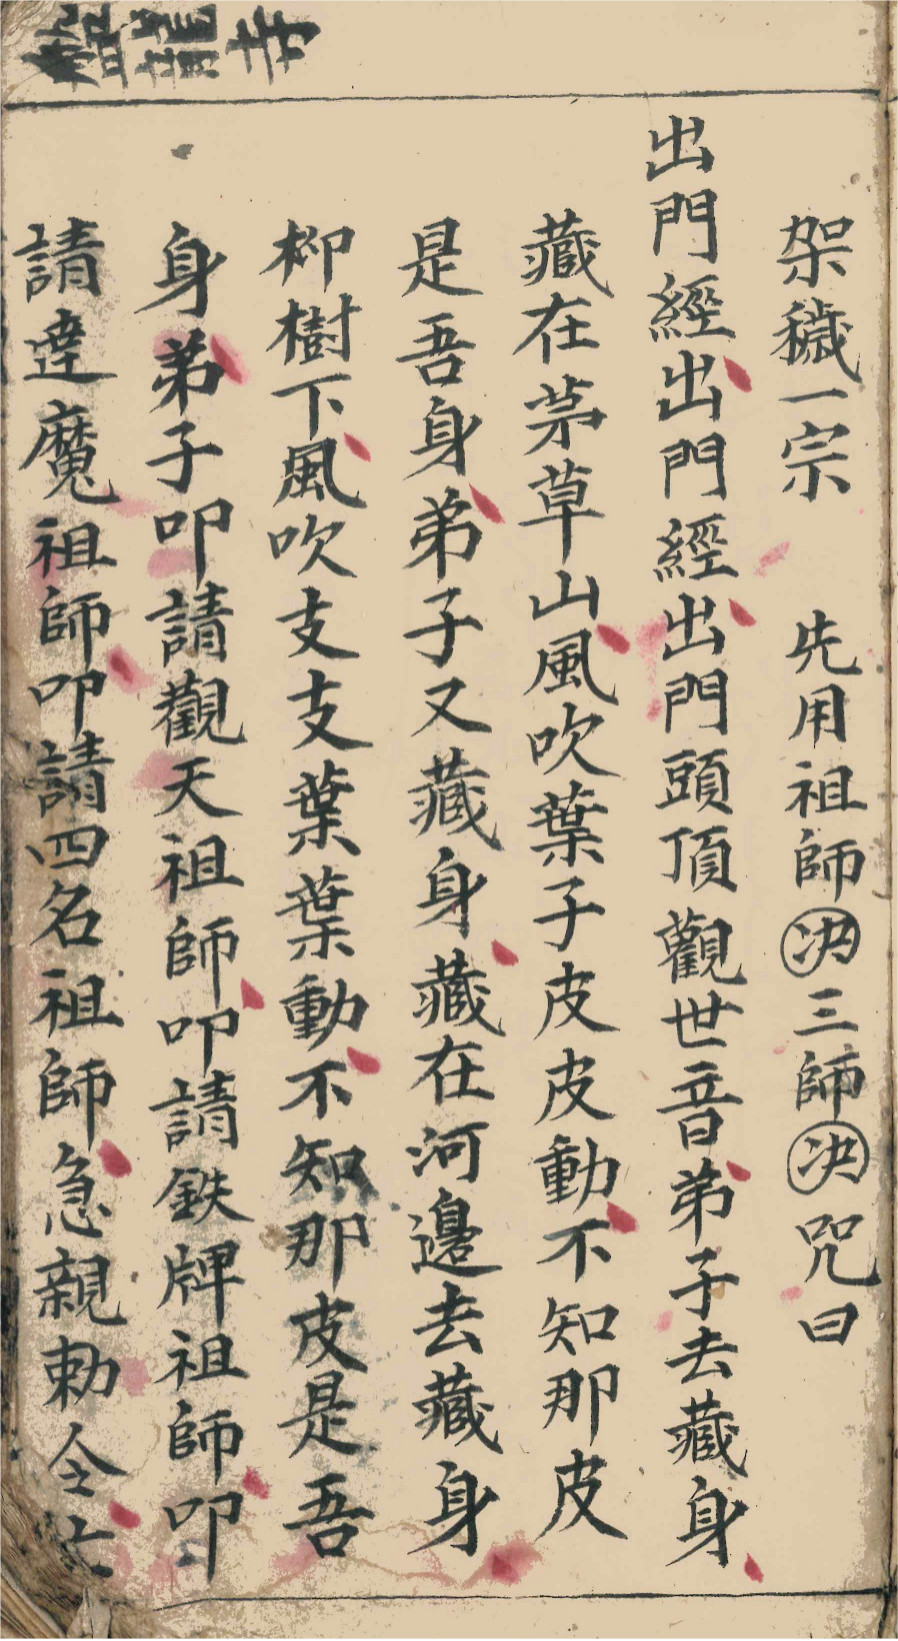 架穢一宗　先用祖師决三師决咒曰
出門經出門經出門頭頂觀世音弟子去藏身
藏在茅草山風吹葉子皮皮動不知那皮
是吾身弟子又藏身藏在河邊去藏身
柳樹下風吹支支葉葉動不知那皮是吾
身弟子叩請觀天祖師叩請鉄牌祖師叩
請達魔祖師叩請四名祖師急親勅令
龍寺